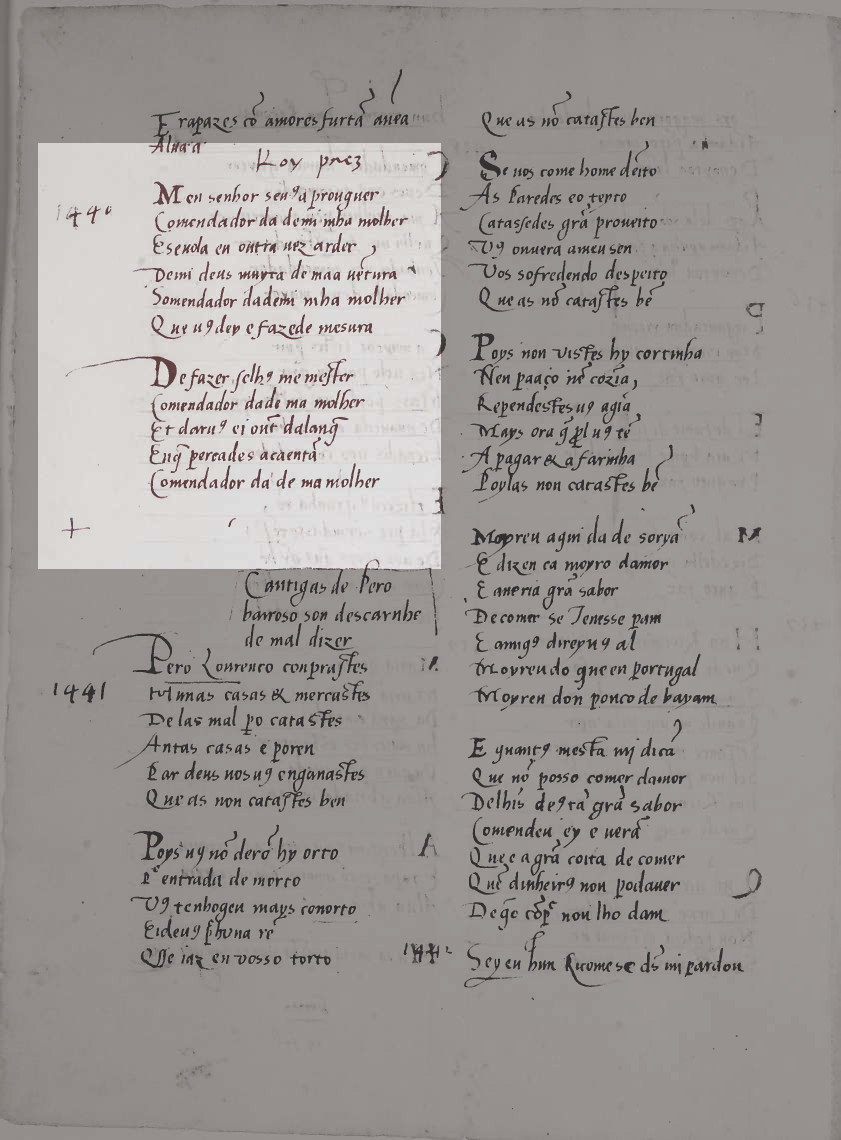 E rapazes cõ amores furtã auẽa
Aluaã
Roy prez
1440
Meu senhor seu9a prouguer
Comendador da demi mha molher
E seuola eu outra uez arder
Demi deus muyta de maa uẽtura
Somendador dademi mha molher
Que u9 dey e fazede mesura
De fazer selh9 me mester
Comendador dade ma molher
Et daru9 ei out dalang̃
Enq̃ percades acaentã
Comendador da de ma molher
Cantigas de Pero
barroso son descarnhe
de mal dizer
1441
Pero Lourenco conprastes
Munas casas & mercastes
De las mal po catastes
Antas casas e poren
Par deus uos u9 enganastes
Que as non catastes ben
Poys u9 nõ derõ hy orto
Pe entrada de morto
V9 tenhogeu mays conorto
Eideu9 phuna re
Qsse iaz en vosso torto
Que as nõ catastes ben
Se uos come home deito
As Paredes eo teyto
Catassedes grã proueito
V9 ouuera ameu sen
Vos sofredendo despeito
Que as nõ catastes bẽ
Poys non uistes hy cortinha
Nen paaço nẽ cozia
Rependestesu9 agia
Mays ora q̃ pl u9 tẽ
A pagar & a farinha
Poylas non catastes bẽ
Moyreu aqui da de soryã
E dizen ca moyro damor
E aueria grã sabor
De comer se Tenesse pam
E amig9 direyu9 al
Moyreu do que en portugal
Moyreu don ponco de bayam
E quant9 mesta mj dica
Que nõ posso comer damor
Delhis de9 tã grã sabor
Comendeu ey e uerã
Que e a grã coita de comer
Quẽ dinheir9 non podauer
De q̃e cõp nou lho dam
1442
Sey eu hun Ricome se d's mi pardou